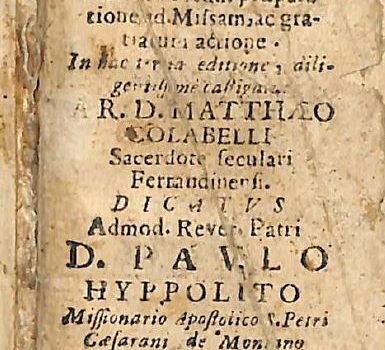 tione ad Miſſam, ac gra-
tiarum actione.
In hac tertia editione, dili-
gentiſſimè caſtigata.
A R. D. MATTHÆO
COLABELLI
Sacerdote ſeculari
Ferrandinenſi.
DICATVS
Admod. Rever. Patri
D. PAVLO
HYPPOLITO
Miſſionario Apoſtolico S. Petri
Cæſarani de